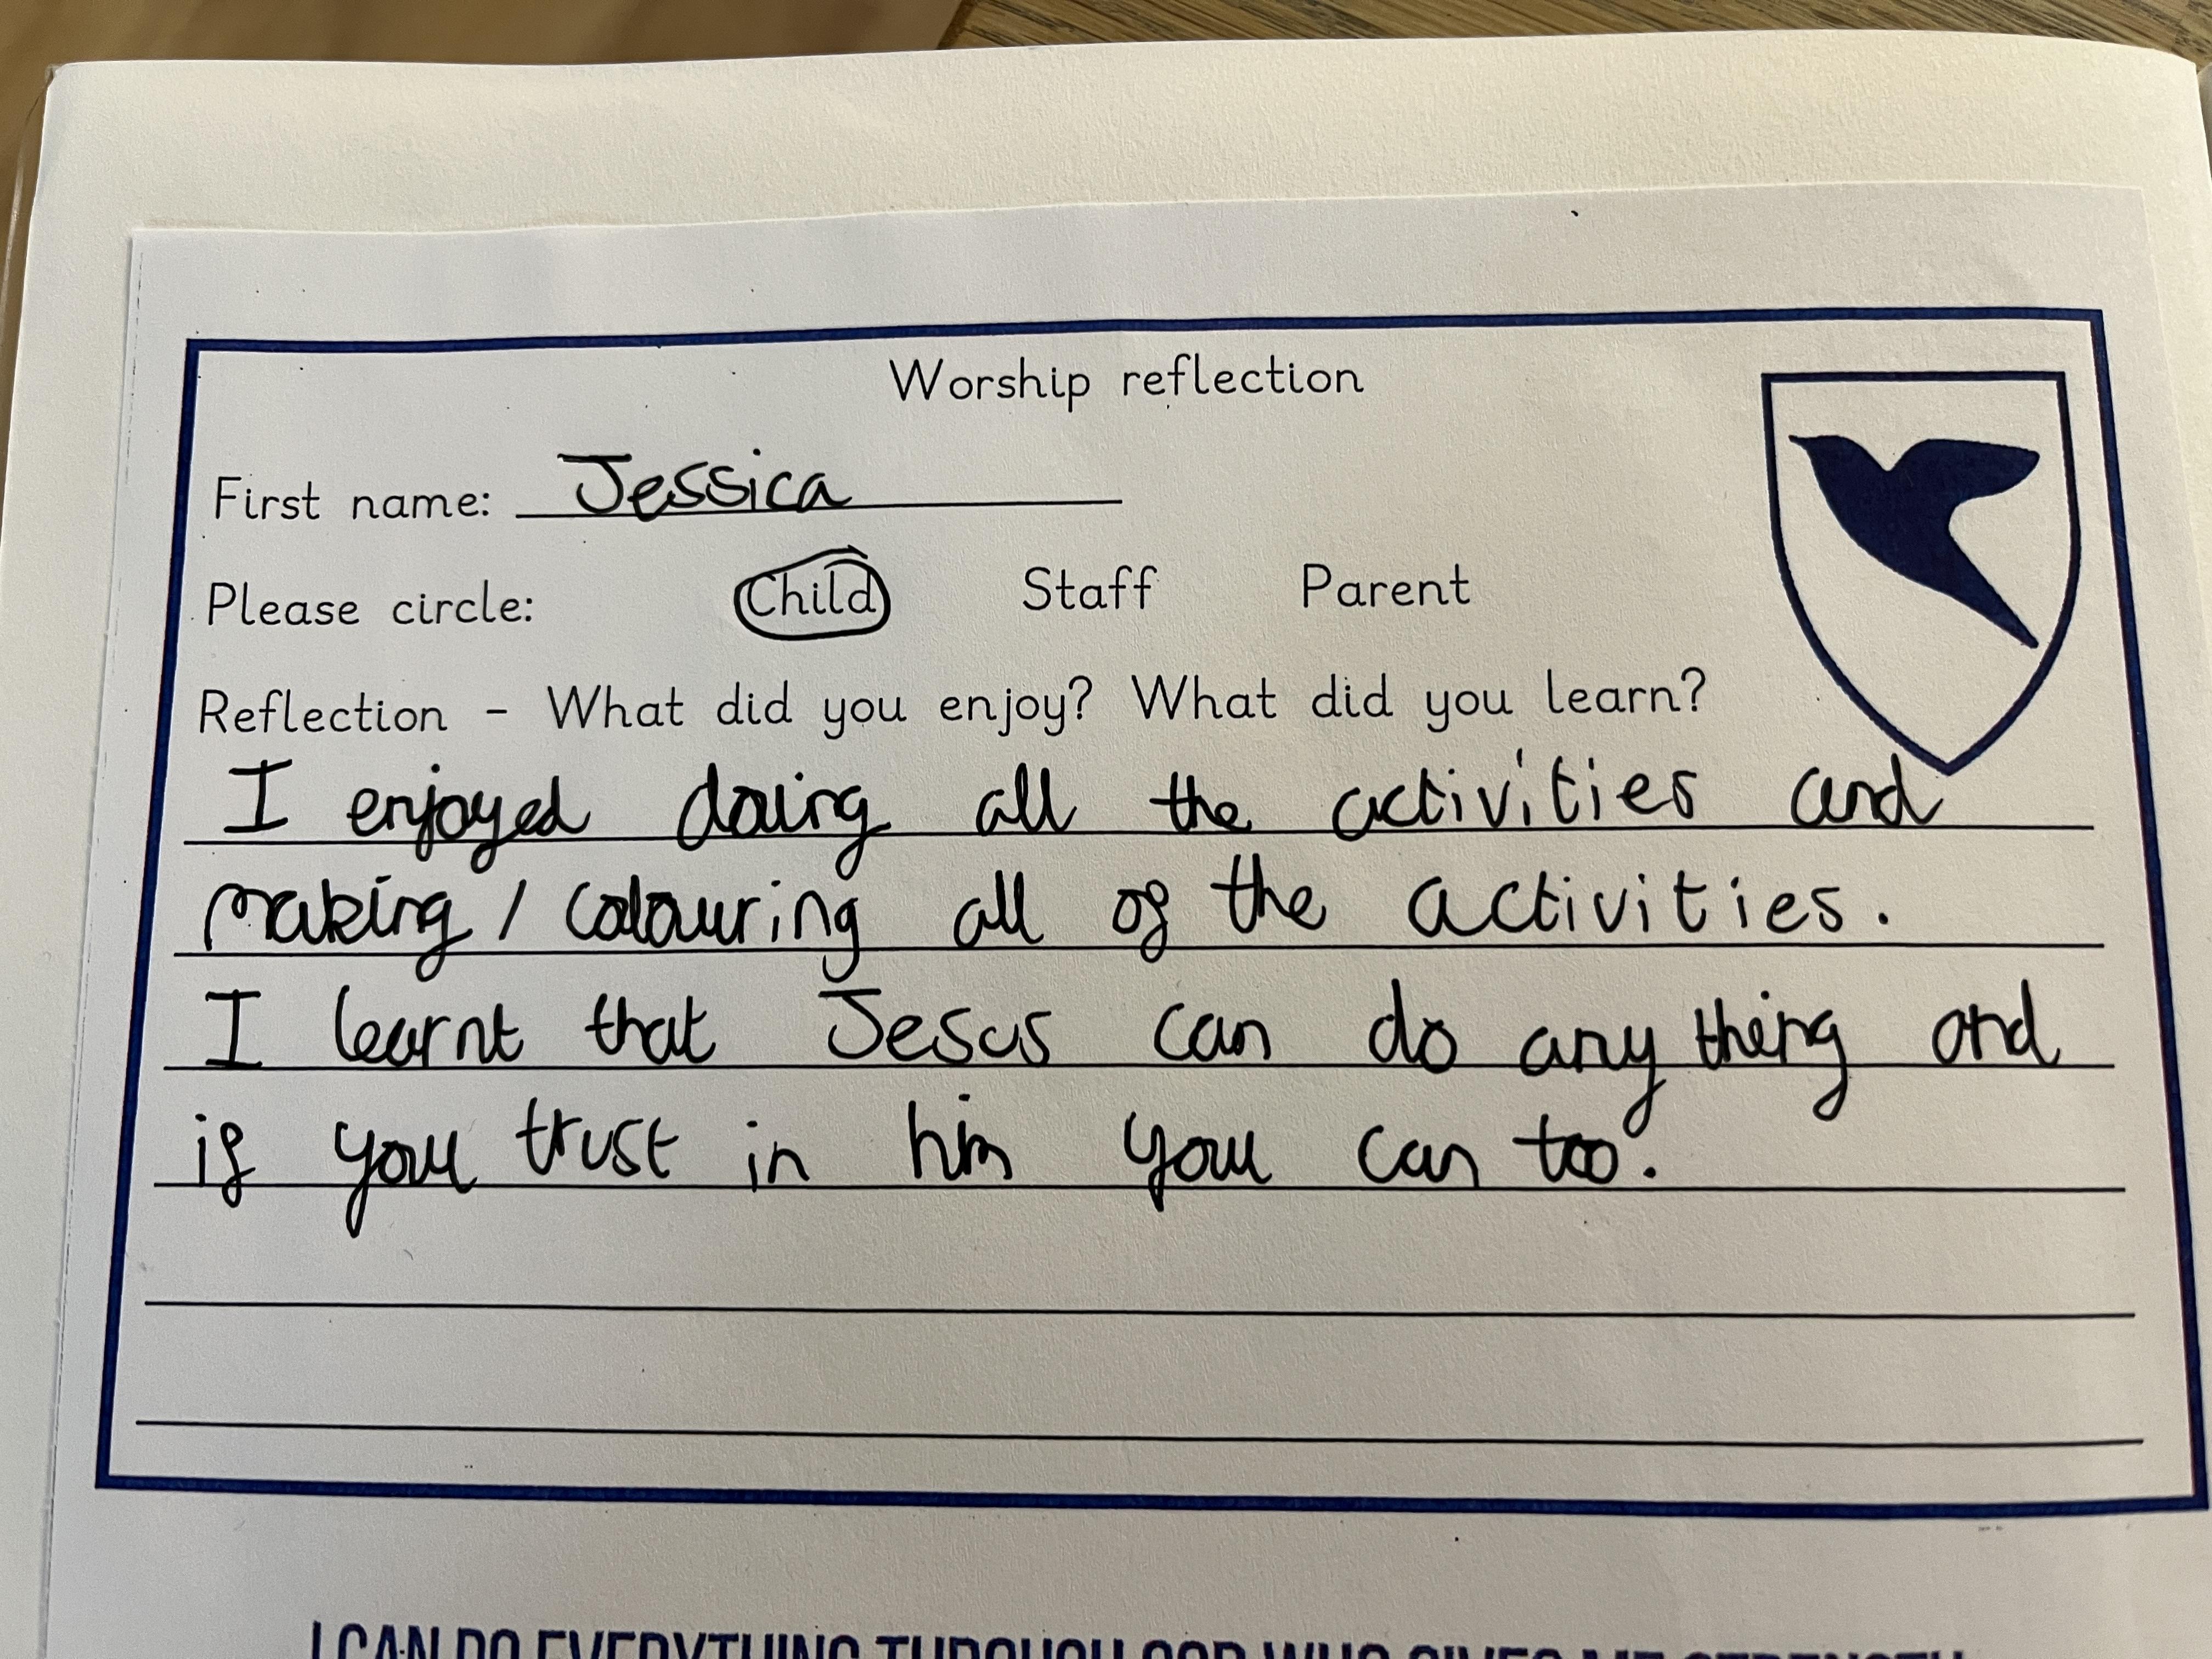 Worship reflection
First name: Jessica
Please circle: Child Staff Parent
Reflection - What did you enjoy? What did you learn?
I enjoyed doing all the activities and
making / colouring all of the activities.
I learnt that Jesus can do any thing and
if you trust in him you can too.
I CAN DO EVERYTHING THROUGH GOD WHO GIVES ME STRENGTH